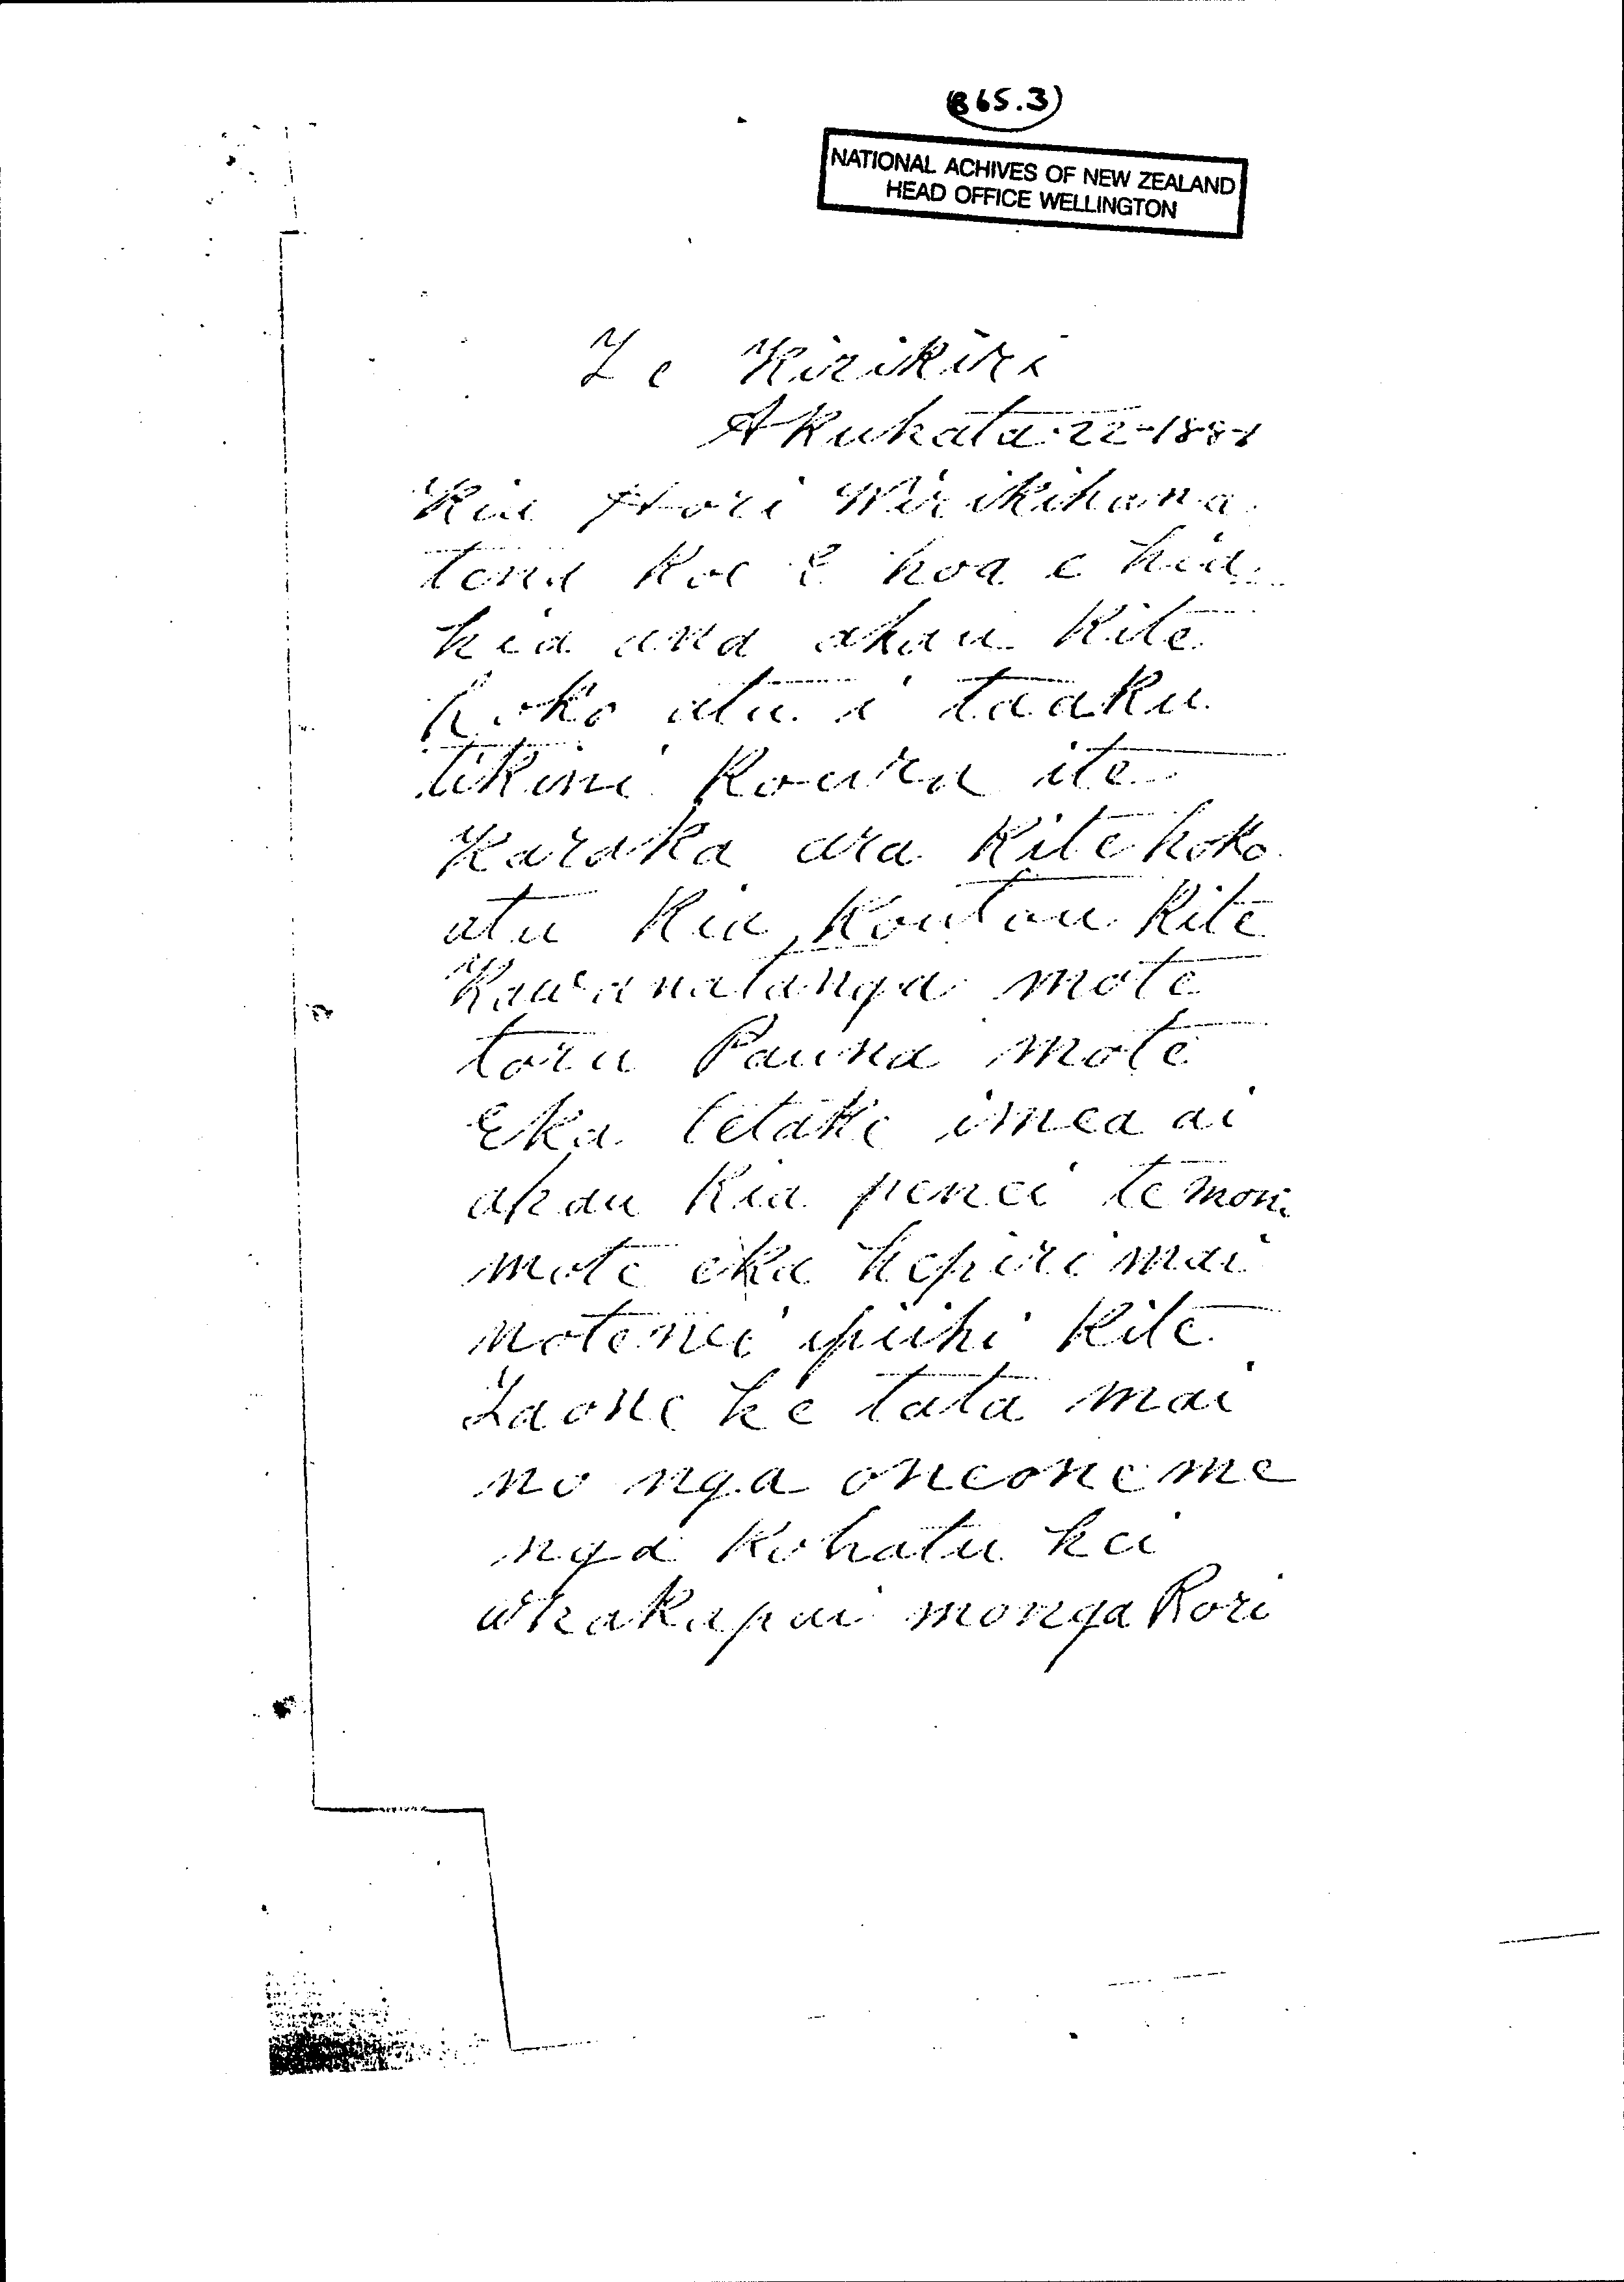 (865.3)
NATIONAL ACHIVES OF NEW ZEALAND
HEAD OFFICE WELLINGTON
Te Kirikiri
Akuhata 22-1881
Kia Hori Wirikihana
tena koe e hoa e hia
hia ana ahau kite
hoko atu i taaku
tikini koura ite
Karaka ara kite hoko
atu kia koutou kite
Kawanatanga mote
toru Pauna mote
Eka tetake imea ai
ahau kia penei te moni
mote eka hepiri mai
notemei ipiihi kite
Taone he tata mai
no nga oneone me
nga kohatu hei
whakapai monga Rori